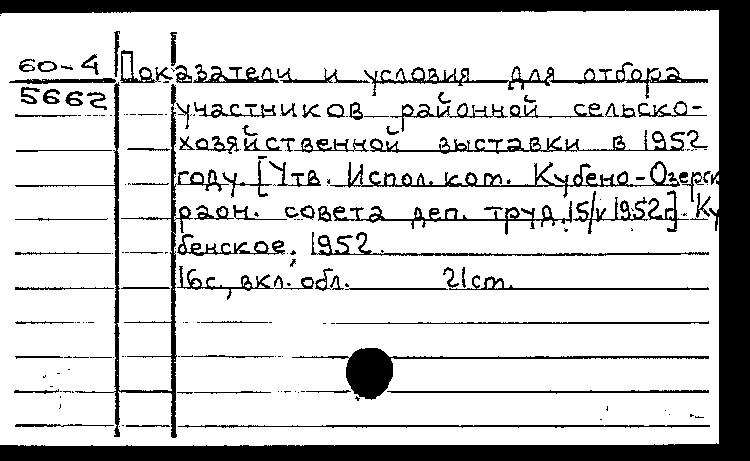 60-4 Показатели и условия для отбора
5662 участников районной сельско-
хозяйственной выставки в 1952
году. [Утв. Испол. ком. Кубено-Озерск
раон. совета деп. труд. 15/V 1952г]. Ку
бенское, 1952.
16с., вкл. обл. 21cm.